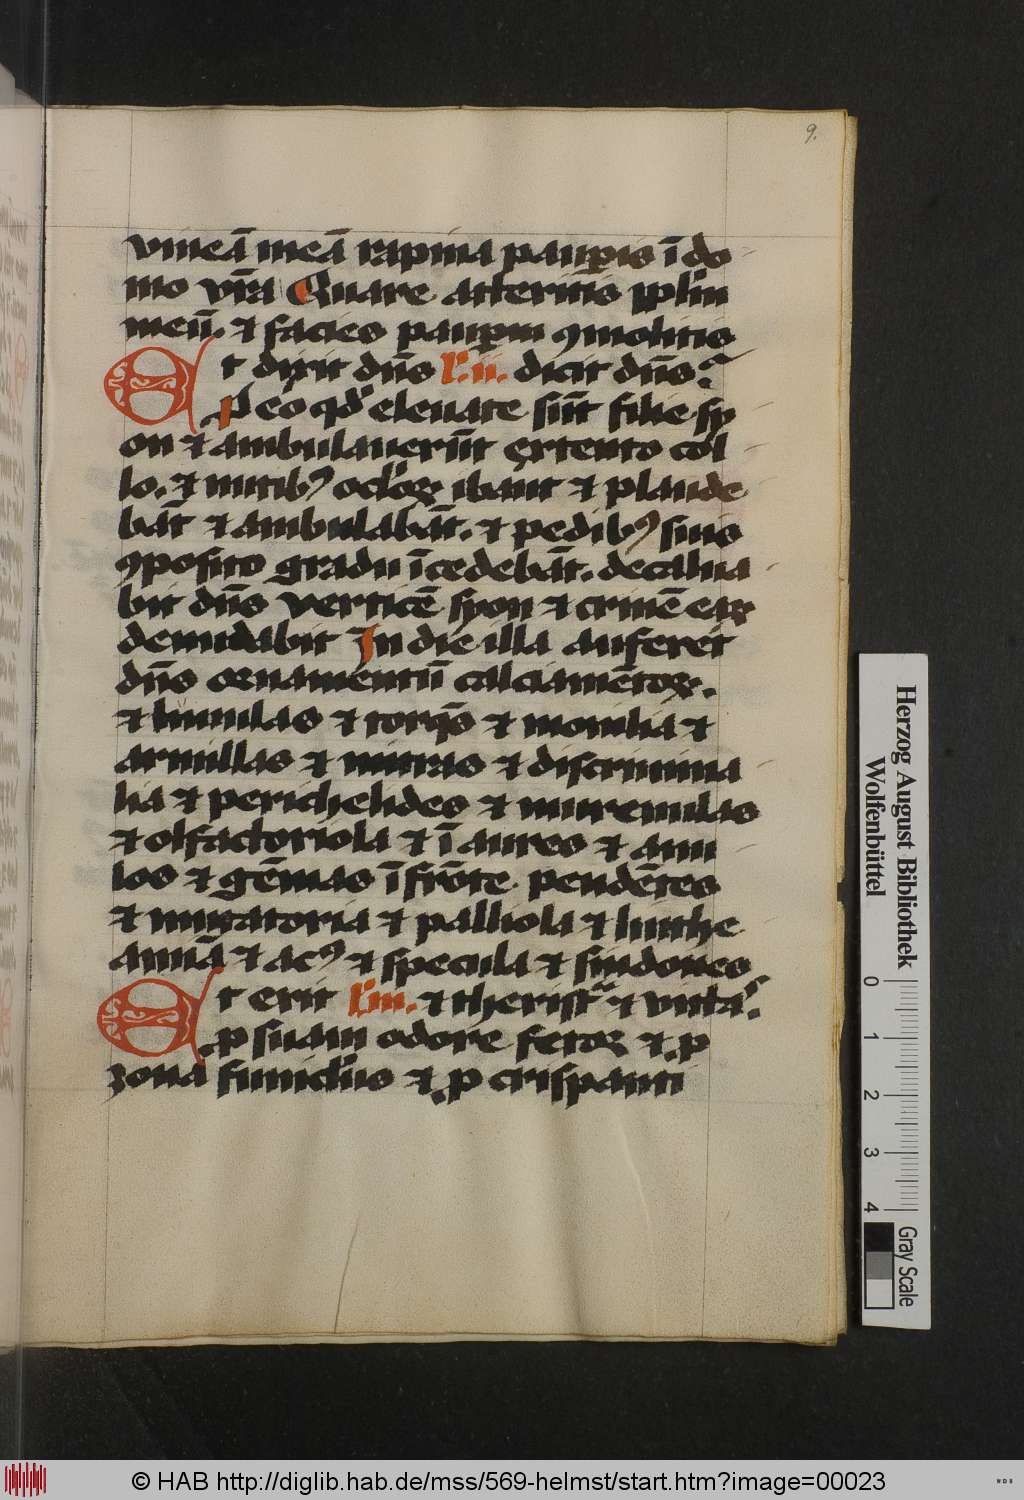 9.
vineā meā rapina paupis ī do
mo vr̄a Quare atteritis pplm
meū. et facies paupum ꝯmolitis
Et dixit dn̄s l'.ii. dicit dn̄s.
p eo qd' elevate sūt filie sy
on et ambulaverūt extento col
lo. et nutibꝰ oclōꝝ ibant et plaude
bāt et ambulabāt. et pedibꝰ suis
ꝯposito gradu īcedebāt. decalua
bit dn̄s verticē syon et crinē eaꝝ
denudabit In die illa auferet
dn̄s ornamentū calciamētoꝝ.
et lunulas et torqs̄ et monilia et
armillas et mitras et discrimina
lia et perichelides et murenulas
et olfactoriola et ī aures et anu
los et gēmas ī frōte pendētes
et mutatoria et palliola et linthe
amiā et acꝰ et specula et sindones
Et erit l'.iii. et therist'a et vittas.
p suavi odore fetoꝝ et p
zona funiclus et p crispanti
Herzog August Bibliothek
Wolfenbüttel
0 1 2 3 4
Gray Scale
© HAB http://diglib.hab.de/mss/569-helmst/start.htm?image=00023